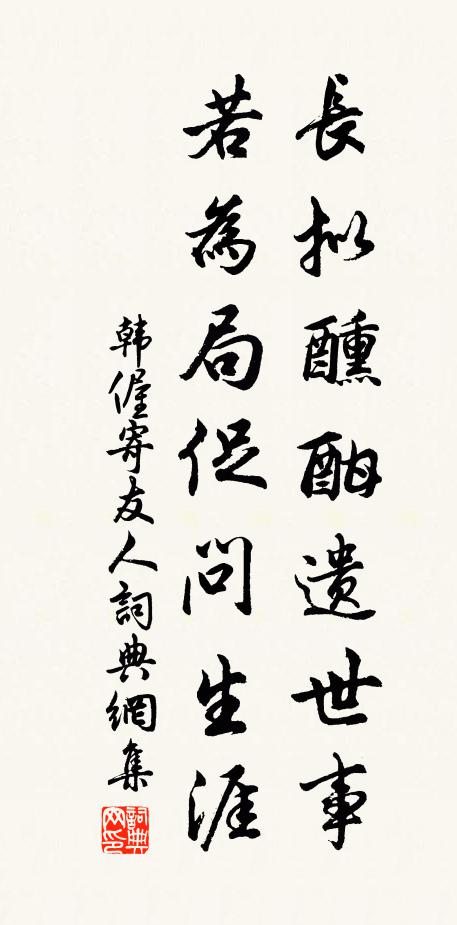 長拟醺酣遗世事
若為局促问生涯
韩偓寄友人詞典網集
詞典网印